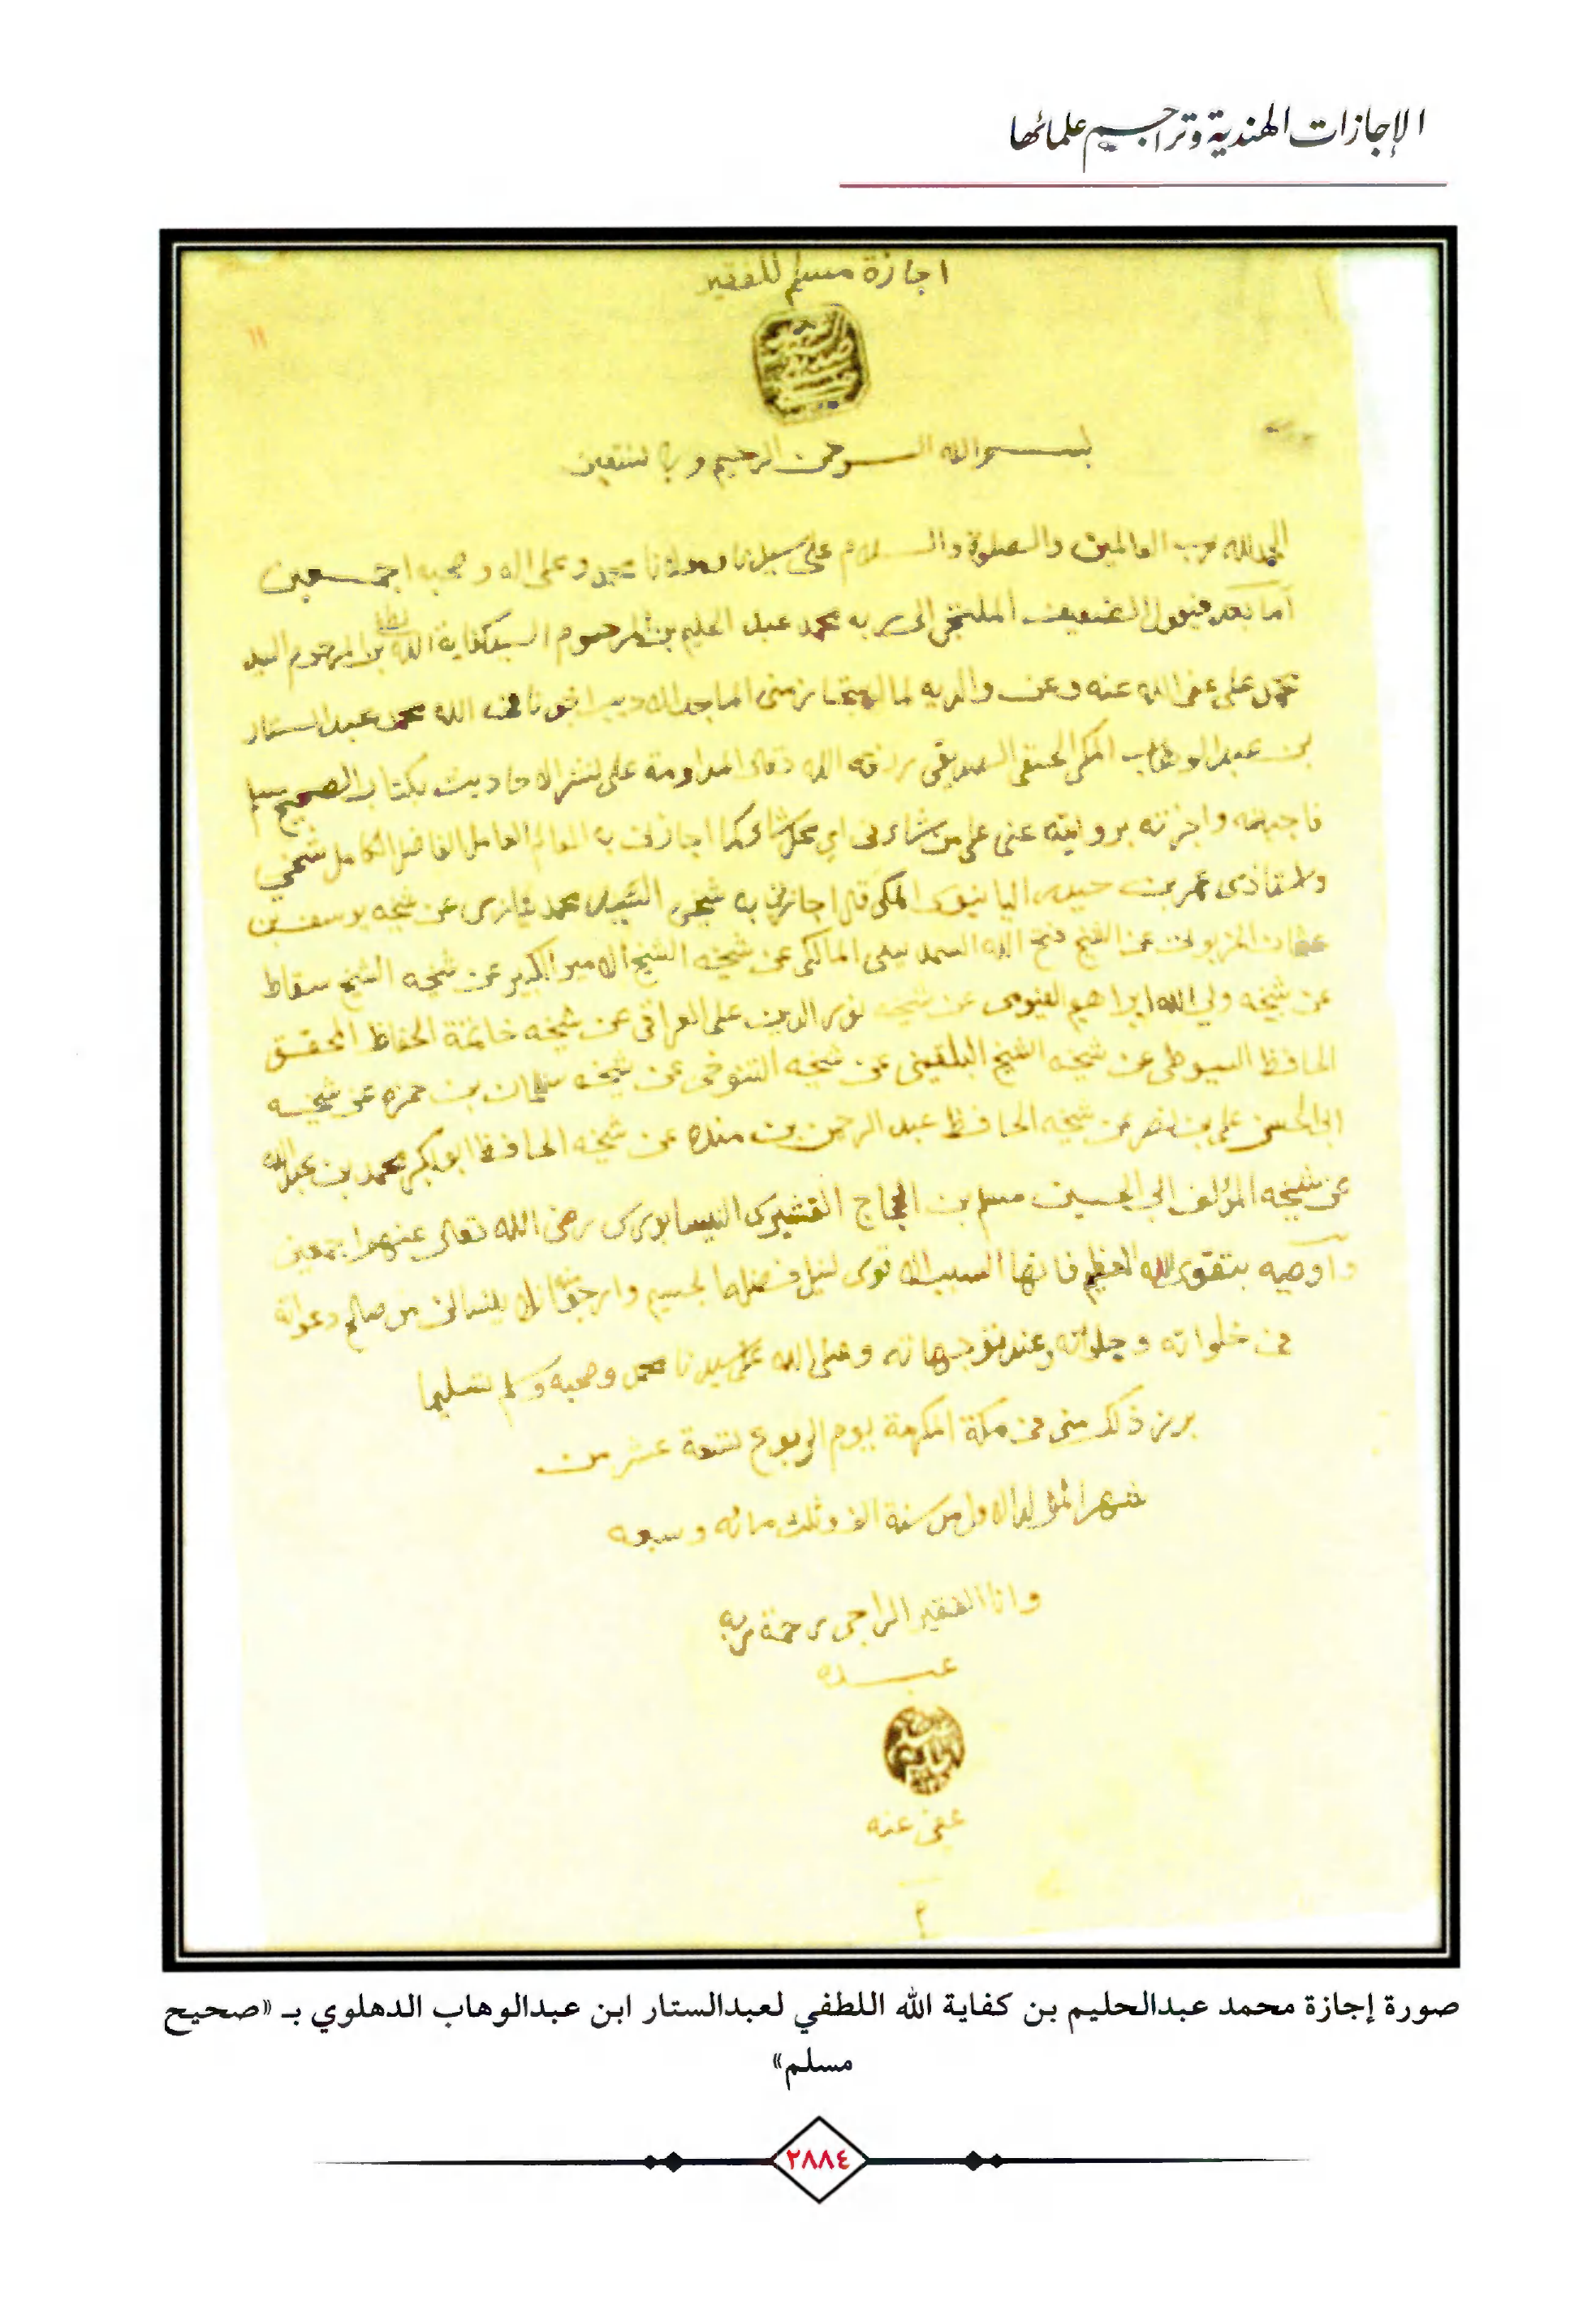 الإجازات الهندية وتراجيم علمائها
اجازة مسلم للفقير
١١
بسم الله الرحمن الرحيم وبه نستعين
الحمد لله رب العالمين والصلوة والسلام على سيدنا ومولانا محمد وعلى اله وصحبه اجمعين
اما بعد فيقول الضعيف الملتجى الى ربه محمد عبد الحليم بن المرحوم السيد كفاية الله بن المرحوم السيد
محمد على عفى الله عنه وعن والديه لما استجاز منى الماجد الاديب اخونا فى الله محمد عبد الستار
بن عبد الوهاب المكى الحنفى الصديقى رزقه الله تعالى المداومة على نشر الاحاديث بكتاب الصحيح مسلم
فاجبته واجزته بروايته عنى على من شاء فى اي محل شاء كما اجازنى به العالم العامل الفاضل الكامل شيخي
واستاذى عمر بن حيدر المكى قال اجازنى به شيخى السيد محمد عن شيخه يوسف بن
عثمان الخربوتى عن الشيخ فتح الله المالكى عن شيخه الشيخ الامير الكبير عن شيخه الشيخ سقاط
عن شيخه ولي الله ابراهيم الفيومى عن شيخه نور الدين على العراقى عن شيخه خاتمة الحفاظ المحقق
الحافظ السيوطى عن شيخه الشيخ البلقينى عن شيخه التنوخى عن شيخه سليمان بن حمزه عن شيخه
ابى الحسن على بن نصر عن شيخه الحافظ عبد الرحمن بن منده عن شيخه الحافظ ابو بكر محمد بن عبد الله
عن شيخه المؤلف ابي الحسين مسلم بن الحجاج القشيرى النيسابورى رضى الله تعالى عنهم اجمعين
واوصيه بتقوى الله العظيم فانها السبب الاقوى لنيل فضله الجسيم وارجو منه ان لا ينسانى من صالح دعواته
فى خلواته وجلواته وعند توجهاته وصلى الله على سيدنا محمد وصحبه وسلم تسليما
برز ذلك منى فى مكة المكرمة يوم الربوع تسعة عشر من
شهر الاول من سنة الف وثلث مائه وسبعه
وانا الفقير الراجى رحمة ربه
عبده
عفى عنه
صورة إجازة محمد عبدالحليم بن كفاية الله اللطفي لعبدالستار ابن عبدالوهاب الدهلوي بـ «صحيح
مسلم»
٢٨٨٤